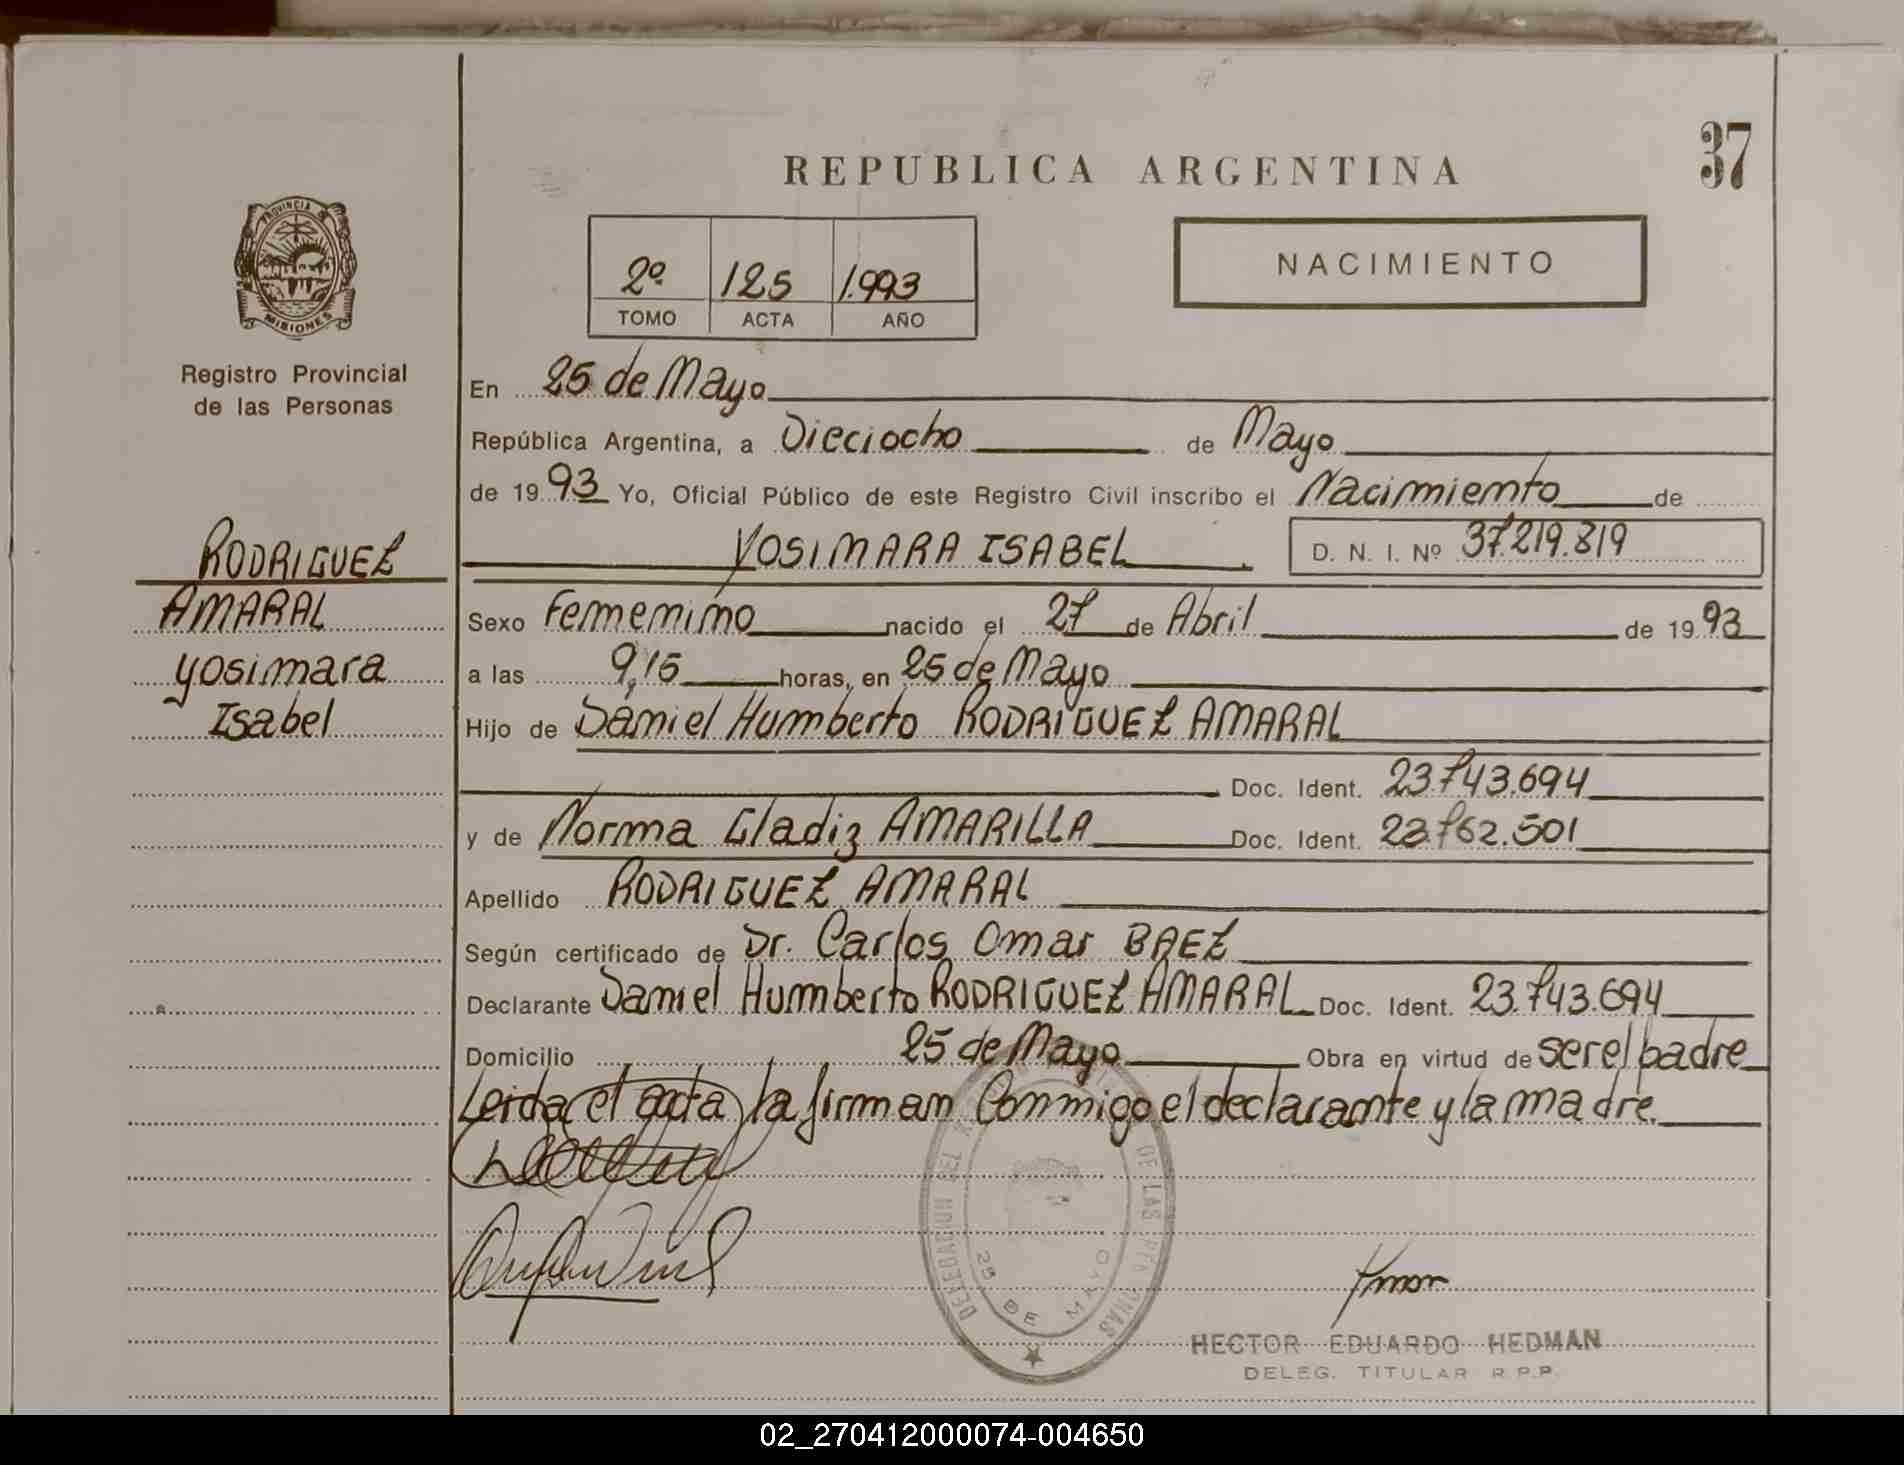 37
REPUBLICA ARGENTINA
PROVINCIA DE
MISIONES
Registro Provincial
de las Personas
2º 125 1.993
TOMO ACTA AÑO
NACIMIENTO
En 25 de Mayo
República Argentina, a Dieciocho de Mayo
de 19 93 Yo, Oficial Público de este Registro Civil inscribo el Nacimiento de
YOSIMARA ISABEL D. N. I. Nº 37.219.819
RODRIGUEZ
AMARAL
yosimara
Isabel
Sexo Femenino nacido el 27 de Abril de 19 93
a las 9,15 horas, en 25 de Mayo
Hijo de Daniel Humberto RODRIGUEZ AMARAL
Doc. Ident. 23.743.694
y de Norma Gladiz AMARILLA Doc. Ident. 23.762.501
Apellido RODRIGUEZ AMARAL
Según certificado de Dr. Carlos Omar BAEZ
Declarante Daniel Humberto RODRIGUEZ AMARAL Doc. Ident. 23.743.694
Domicilio 25 de Mayo Obra en virtud de ser el padre
Leida el acta la firman Conmigo el declarante y la madre.
DELEGACION DEL DE LAS PERSONAS
25 DE MAYO
HECTOR EDUARDO HEDMAN
DELEG. TITULAR R.P.P.
02_270412000074-004650